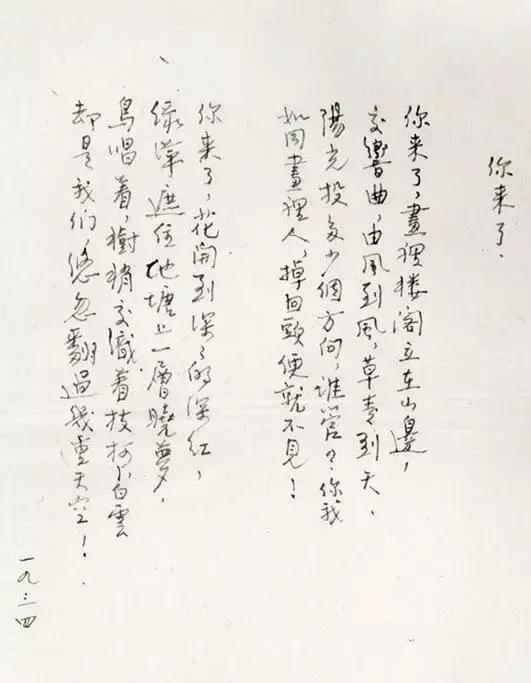 你来了.
你来了,畫裡楼阁立在山邊,
交響曲,由風到風,草青到天.
陽光投多少個方向,誰管?你我
如同畫裡人,掉回頭便就不見!
你来了,花開到深深的深红,
绿萍遮住池塘上一層曉夢.
鳥唱着,樹梢交織着枝柯,白雲
却是我们,悠忽翻過幾重天空!